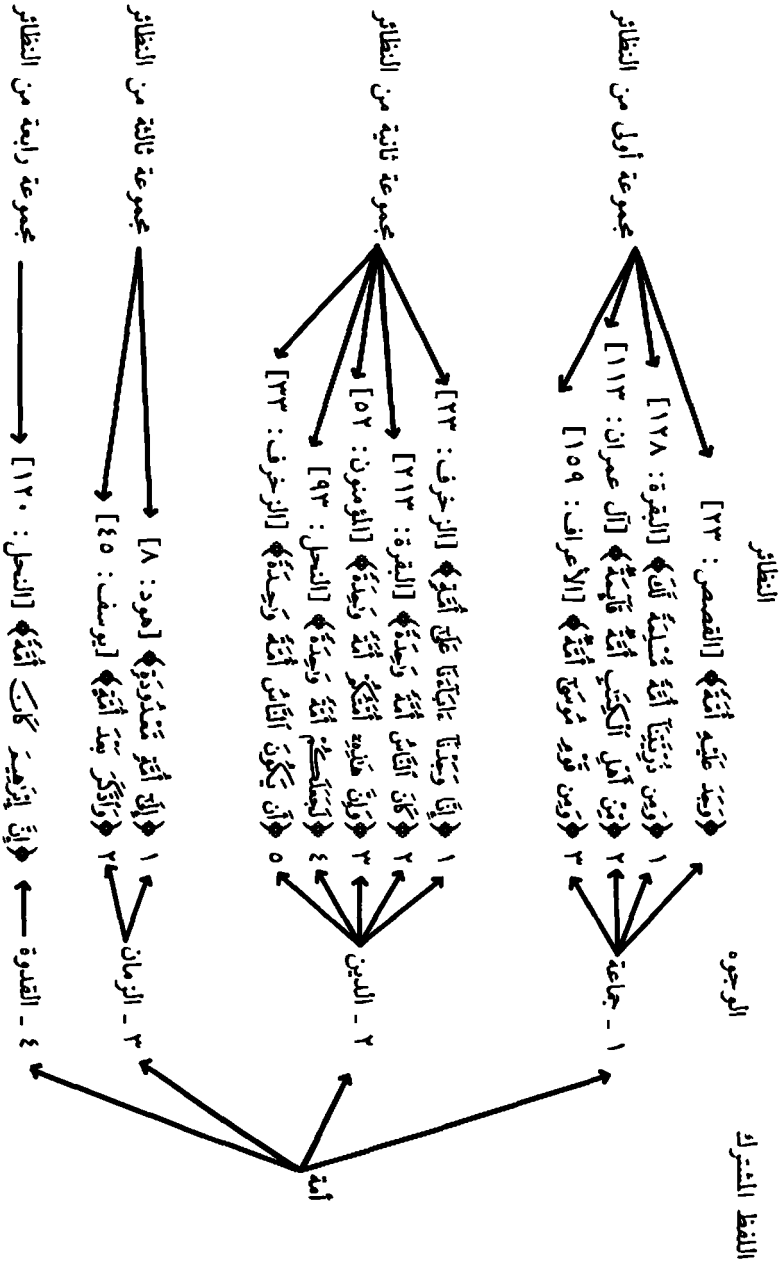 اللفظ المشترك
الوجوه
النظائر
أمة
١ - جماعة
﴿وَجَدَ عَلَيْهِ أُمَّةً﴾ [القصص: ٢٣]
١ ﴿وَمِن ذُرِّيَّتِنَآ أُمَّةً مُّسْلِمَةً لَّكَ﴾ [البقرة: ١٢٨]
٢ ﴿مِّنْ أَهْلِ ٱلْكِتَٰبِ أُمَّةٌ قَآئِمَةٌ﴾ [آل عمران: ١١٣]
٣ ﴿وَمِن قَوْمِ مُوسَىٰٓ أُمَّةٌ﴾ [الأعراف: ١٥٩]
مجموعة أولى من النظائر
٢ - الدين
١ ﴿إِنَّا وَجَدْنَآ ءَابَآءَنَا عَلَىٰٓ أُمَّةٍ﴾ [الزخرف: ٢٣]
٢ ﴿كَانَ ٱلنَّاسُ أُمَّةً وَٰحِدَةً﴾ [البقرة: ٢١٣]
٣ ﴿وَإِنَّ هَٰذِهِۦٓ أُمَّتُكُمْ أُمَّةً وَٰحِدَةً﴾ [المؤمنون: ٥٢]
٤ ﴿لَجَعَلَكُمْ أُمَّةً وَٰحِدَةً﴾ [النحل: ٩٣]
٥ ﴿أَن يَكُونَ ٱلنَّاسُ أُمَّةً وَٰحِدَةً﴾ [الزخرف: ٣٣]
مجموعة ثانية من النظائر
٣ - الزمان
١ ﴿إِلَىٰٓ أُمَّةٍ مَّعْدُودَةٍ﴾ [هود: ٨]
٢ ﴿وَٱدَّكَرَ بَعْدَ أُمَّةٍ﴾ [يوسف: ٤٥]
مجموعة ثالثة من النظائر
٤ - القدوة
﴿إِنَّ إِبْرَٰهِيمَ كَانَ أُمَّةً﴾ [النحل: ١٢٠]
مجموعة رابعة من النظائر